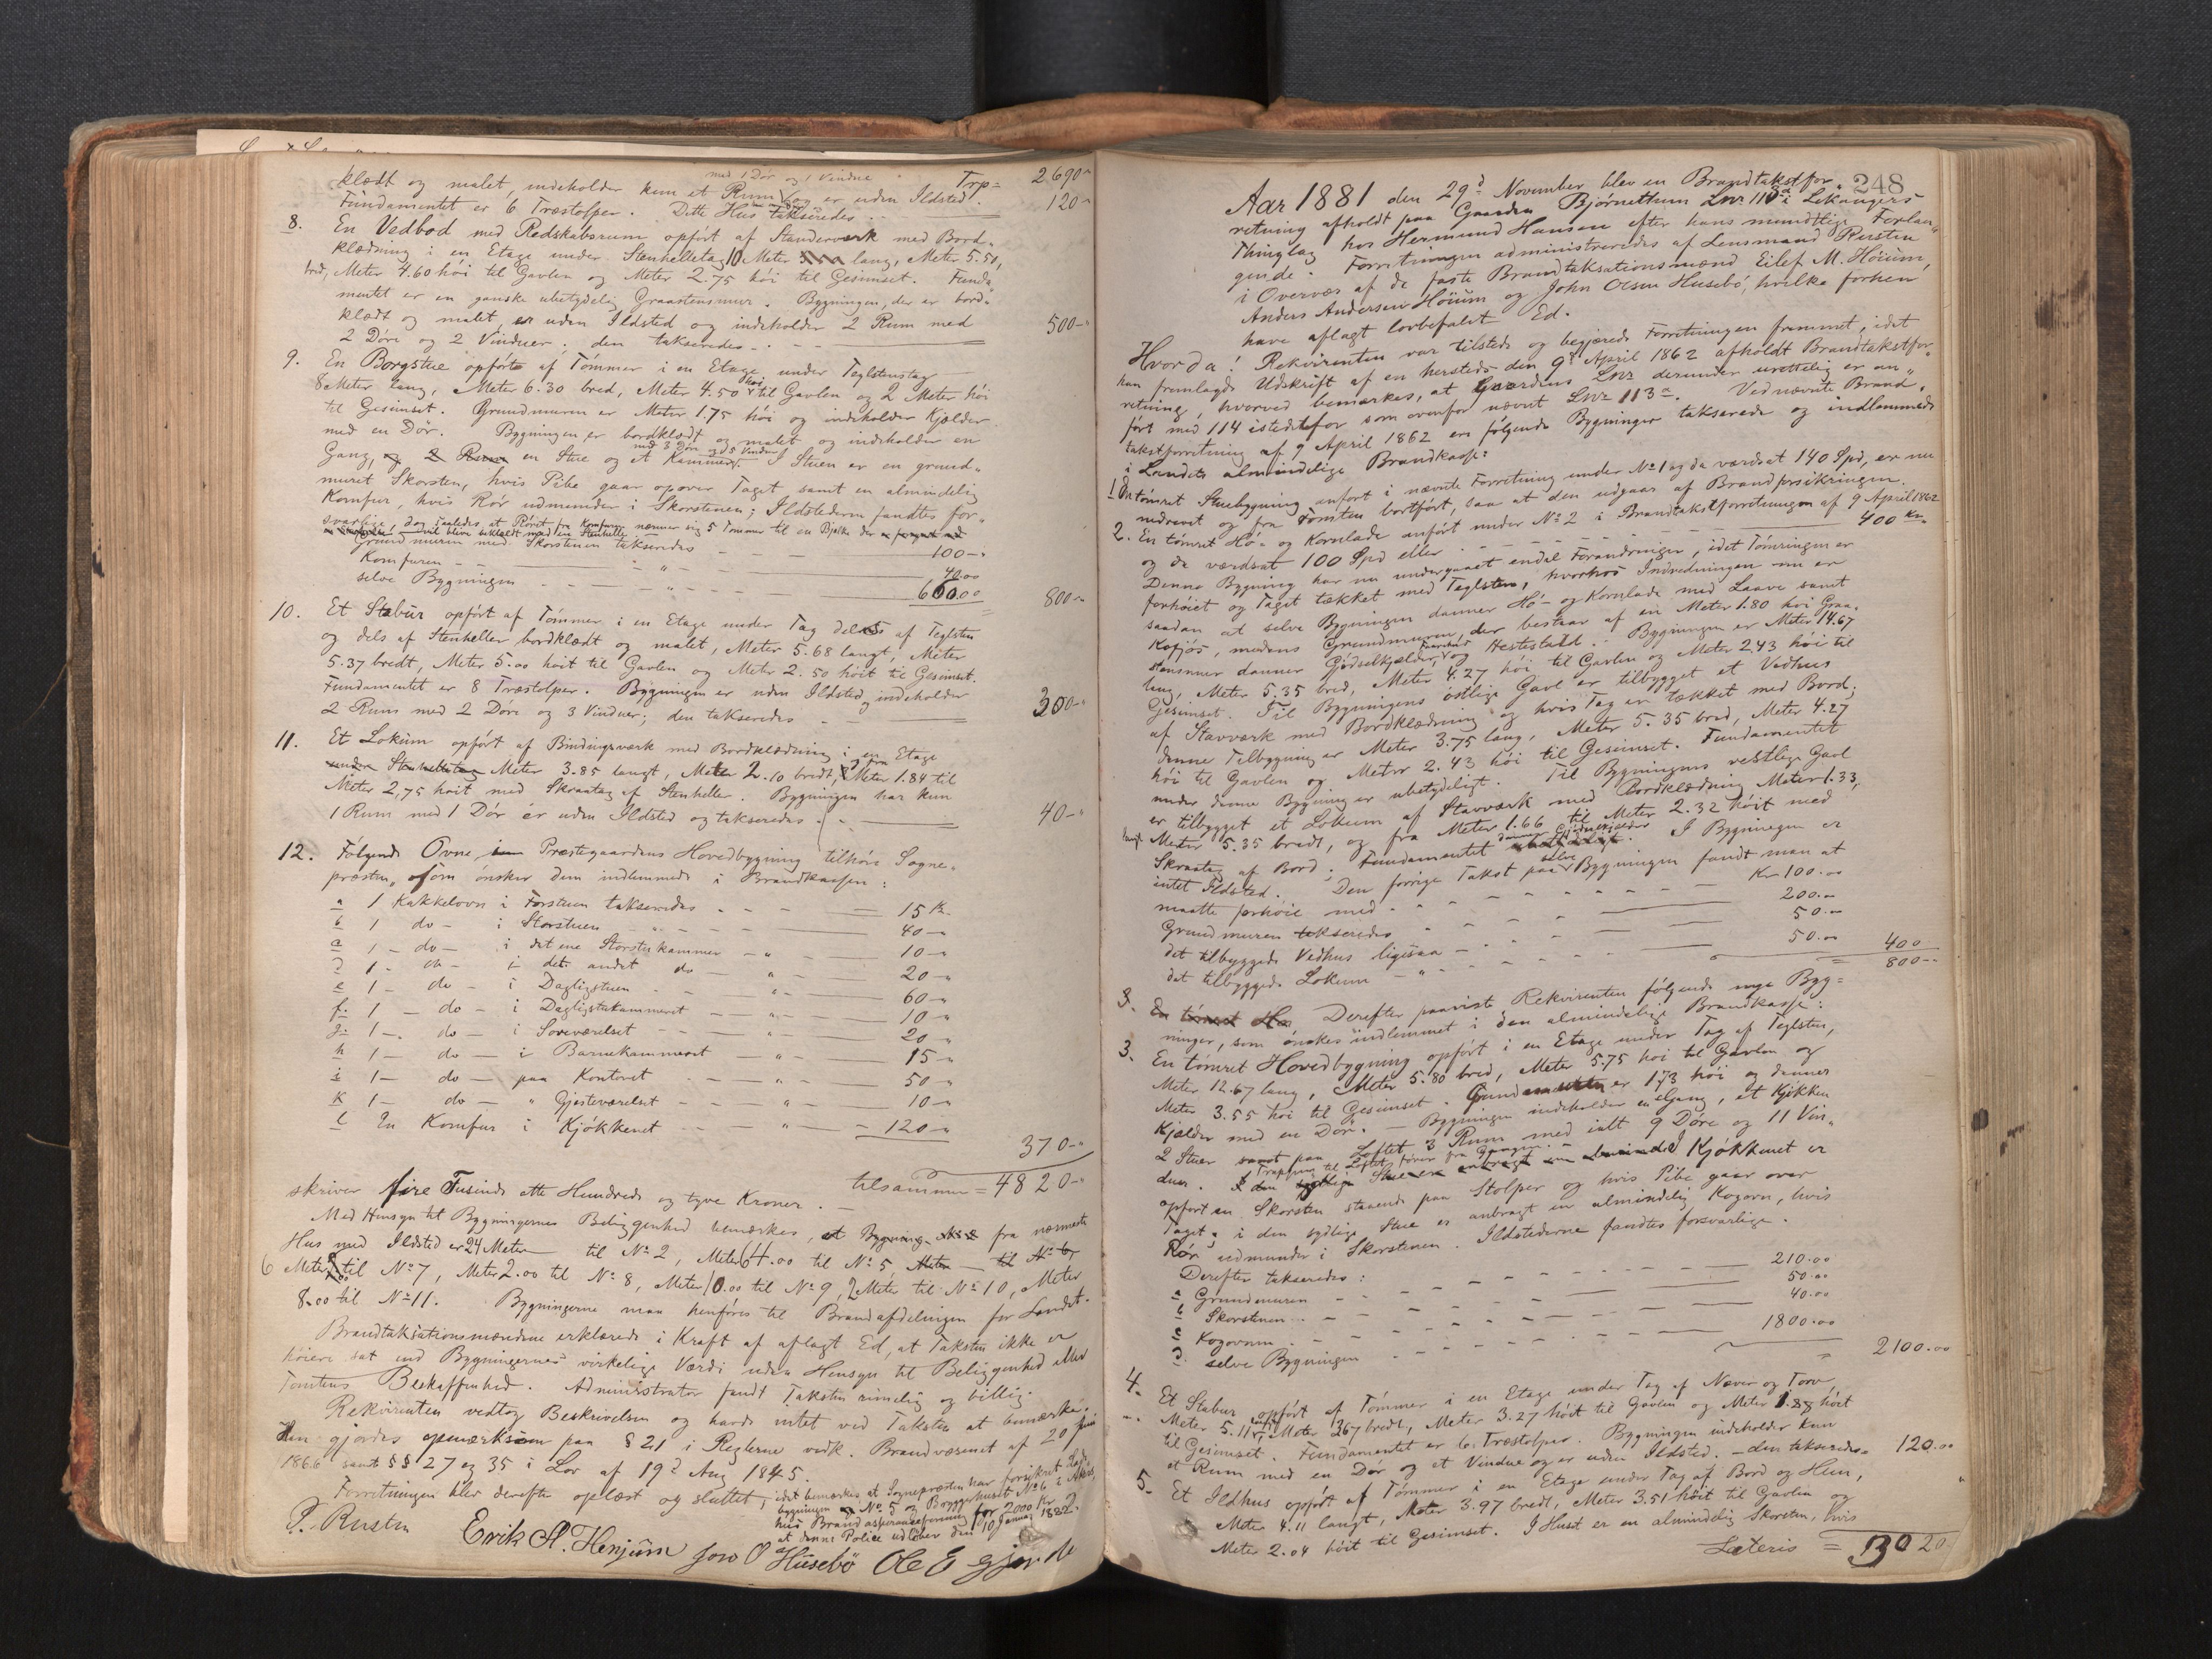 med 1 Dör og 1 Vindue
klædt og malet, indeholder kun et Rum og er uden Ildsted. Trp = 2690 "
Fundamentet er 6 Træstolper. Dette Hus takseredes 120 "
8. En Vedbod med Redskabsrum opfört af Standerværk med Bord-
klædning i en Etage under Stenhelletag 10 Meter lang, Meter 5.50,
bred, Meter 4.60 höi til Gavlen og Meter 2.75 höi til Gesimset. Funda-
mentet er en ganske ubetydelig Graastensmur. Bygningen, der er bord-
klædt og malet, er uden Ildsted og indeholder 2 Rum med
2 Döre og 2 Vinduer; den takseredes 500 - "
9. En Borgstue opförte af Tömmer i en Etage under Teglstenstag
8 Meter lang, Meter 6.30 bred, Meter 4.50 höi til Gavlen og 2 Meter höi
til Gesimset. Grundmuren er Meter 1.75 höi og indeholder Kjælder
med en Dör. Bygningen er bordklædt og malet og indeholder en
Gang, og 2 Rum en Stue og et Kammer med 3 Döre og 5 Vinduer. I Stuen er en grund-
muret Skorsten, hvis Pibe gaar opover Taget samt en almindelig
Komfur, hvis Rör udmunder i Skorstenen; Ildstederne fandtes for-
svarlige, dog saaledes at Röret fra Komfuret nærmer sig 5 Tommer til en Bjelke der
vil blive beklædt med en Stenhelle
Grundmuren med Skorstenen takseredes 100 - "
Komfuren - " - 40.00
selve Bygningen - " - 660.00 800 - "
10. Et Stabur opfört af Tömmer i en Etage under Tag dels af Teglsten
og dels af Stenheller bordklædt og malet, Meter 5.68 langt, Meter
5.37 bredt, Meter 5.00 höit til Gavlen og Meter 2.50 höit til Gesimset.
Fundamentet er 8 Træstolper. Bygningen er uden Ildsted og indeholder
2 Rum med 2 Döre og 3 Vinduer; den takseredes 300 - "
11. Et Lokum opfört af Bindingsværk med Bordklædning i en Etage
under Stenhelletag Meter 3.85 langt, Meter 2.10 bredt, og fra Meter 1.84 til
Meter 2,75 höit med Skraatag af Stenheller. Bygningen har kun
1 Rum med 1 Dör er uden Ildsted og takseredes 40 - "
12. Fölgende Ovne i Præstegaardens Hovedbygning tilhöre Sogne-
præsten, som önsker dem indlemmede i Brandkassen:
a 1 Kakkelovn i Forstuen takseredes 15 Kr.
b 1 do - i Storstuen - " - 40 - "
c 1 - do - i det ene Storstukammer - " - 10 - "
d 1 - do - i det andet do - " - 20 - "
e 1 - do - i Dagligstuen - " - 60 - "
f. 1 - do - i Dagligstukammeret - " - 10 - "
g. 1 - do - i Soveværelset - " - 20 - "
h 1 - do - i Barnekammeret - " - 15 - "
i 1 - do - paa Kontoret - " - 50 - "
k 1 - do - " Gjesteværelset - " - 10 - "
l En Komfur i Kjökkenet - " - 120 - "
370 - "
tilsammen = 4820 - "
skriver fire Tusinde otte Hundrede og tyve Kroner.
Med Hensyn til Bygningernes Beliggenhed bemærkes, at Bygning No 2 fra nærmeste
Hus med Ildsted er 24 Meter til No 2, Meter 64.00 til No 5 Meter - til No 6,
6 Meter til No 7, Meter 2.00 til No 8, Meter 10.00 til No 9, 2 Meter til No 10, Meter
8.00 til No 11. Bygningerne maa henföres til Brandafdelingen for Landet.
Brandtaksationsmændene erklærede i Kraft af aflagt Ed, at Taksten ikke er
höiere sat end Bygningernes virkelige Værdi uden Hensyn til Beliggenhed eller
Tomtens Beskaffenhed. Administrator fandt Taksten rimelig og billig.
Rekvirenten vedtog Beskrivelsen og havde intet ved Taksten at bemærke.
Han gjordes opmærksom paa § 21 i Reglerne vedk. Brandvæsenet af 20 Juni
1866 samt §§ 27 og 35 i Lov af 19d Aug 1845.
Forretningen blev derefter oplæst og sluttet; idet bemærkes at Sognepræsten har forsikret
bygningen No 5 og Bryggerhuset No 6 i
hus Brandassuranceforening for 2000 Kr
at denne Police udlöber den 10 Januar 1882.
P. Rusten Erik A. Henjum Jon O Husebö Ole E Gjerde
248
Aar 1881 den 29d November blev en Brandtakstfor-
retning afholdt paa Gaarden Björnethun Lnr 113a i Leikangers
Thinglag hos Hermund Hansen efter hans mundtlige Forlan-
gende. Forretningen administreredes af Lensmand Rusten
i Overvær af de faste Brandtaksationsmænd Eilef M. Höium,
Anders Andersen Höium og John Olsen Husebö, hvilke forhen
have aflagt lovbefalet Ed.
Hvorda: Rekvirenten var tilstede og begjærede Forretningen fremmet, idet
han fremlagde Udskrift af en hersteds den 9d April 1862 afholdt Brandtakstfor-
retning, hvorved bemærkes, at Gaardens Lnr derunder urettelig er an-
fört med 114 istedetfor som ovenfor nævnt Lnr 113a. Ved nævnte Brand-
takstforretning af 9 April 1862 ere fölgende Bygninger takserede og indlemmede
i Landets almindelige Brandkasse:
1. En tömret Stuebygning anfört i nævnte Forretning under No 1 og da værdsat 140 Spd, er nu
nedrevet og fra Tomten bortfört, saa at den udgaar af Brandforsikringen.
2. En tömret Hö- og Kornlade anfört under No 2 i Brandtakstforretningen af 9 April 1862
og da værdsat 100 Spd eller 400 Kr.
Denne Bygning har nu undergaaet endel Forandringer, idet Tömringen er
forhöiet og Taget tækket med Teglsten, hvorhos Indredningen nu er
saadan at selve Bygningen danner Hö- og Kornlade med Laave samt
Kofjös, medens Grundmuren, der bestaar af en Meter 1.80 höi Graa-
stensmur danner Gjödselkjælder, og Hestestald. Bygningen er Meter 14.67
lang, Meter 5.35 bred, Meter 4.27 höi til Gavlen og Meter 2.43 höi til
Gesimset. Til Bygningens östlige Gavl er tilbygget et Vedhus
af Stavværk med Bordklædning og hvis Tag er tækket med Bord;
denne Tilbygning er Meter 3.75 lang, Meter 5.35 bred, Meter 4.27
höi til Gavlen og Meter 2.43 höi til Gesimset. Fundamentet
under denne Bygning er ubetydeligt. Til Bygningens vestlige Gavl
er tilbygget et Lokum af Stavværk med Bordklædning Meter 1.33,
langt Meter 5.35 bredt, og fra Meter 1.66 til Meter 2.32 höit med
Skraatag af Bord; Fundamentet danner Gjödselkjælder. I Bygningen er
intet Ildsted. Den forrige Takst paa selve Bygningen fandt man at
maatte forhöie med Kr 100.00
Grundmuren takseredes 200.00
det tilbyggede Vedhus ligesaa 50.00
det tilbyggede Lokum - " 50.00 400
= 800 - "
3. En tömret Derefter paaviste Rekvirenten fölgende nye Byg-
ninger, som önskes indlemmet i den almindelige Brandkasse:
3. En tömret Hovedbygning opfört i en Etage under Tag af Teglsten,
Meter 12.67 lang, Meter 5.80 bred, Meter 5.75 höi til Gavlen og
Meter 3.55 höi til Gesimset. Grundmuren er 1.73 höi og danner
Kjælder med en Dör. - Bygningen indeholder en Gang, et Kjökken
2 Stuer samt paa Loftet 3 Rum med ialt 9 Döre og 11 Vin-
duer. Trappen til Loftet förer fra Gangen. I Kjökkenet er
opfört en Skorsten staaende paa Stolper og hvis Pibe gaar over
Taget; i den sydlige Stue er anbragt en almindelig Kogovn, hvis
Rör udmunder i Skorstenen. Ildstederne fandtes forsvarlige.
Derefter takseredes:
a Grundmuren 210.00
b Skorstenen 50.00
c Kogovnen 40.00
d. selve Bygningen 1800.00
= 2100.00
4. Et Stabur opfört af Tömmer i en Etage under Tag af Næver og Torv
Meter 5.11 langt Meter 3.67 bredt, Meter 3.27 höit til Gavlen og Meter 1.88 höit
til Gesimset. Fundamentet er 6 Træstolper. Bygningen indeholder kun
et Rum med en Dör og et Vindue og er uden Ildsted. - den takseredes 120.00
5. Et Ildhus opfört af Tömmer i en Etage under Tag af Bord og Hun,
Meter 4.11 langt, Meter 3.97 bredt, Meter 3.51 höit til Gavlen og
Meter 2.04 höit til Gesimset. I Huset er en almindelig Skorsten, hvis
Lateris = 3020